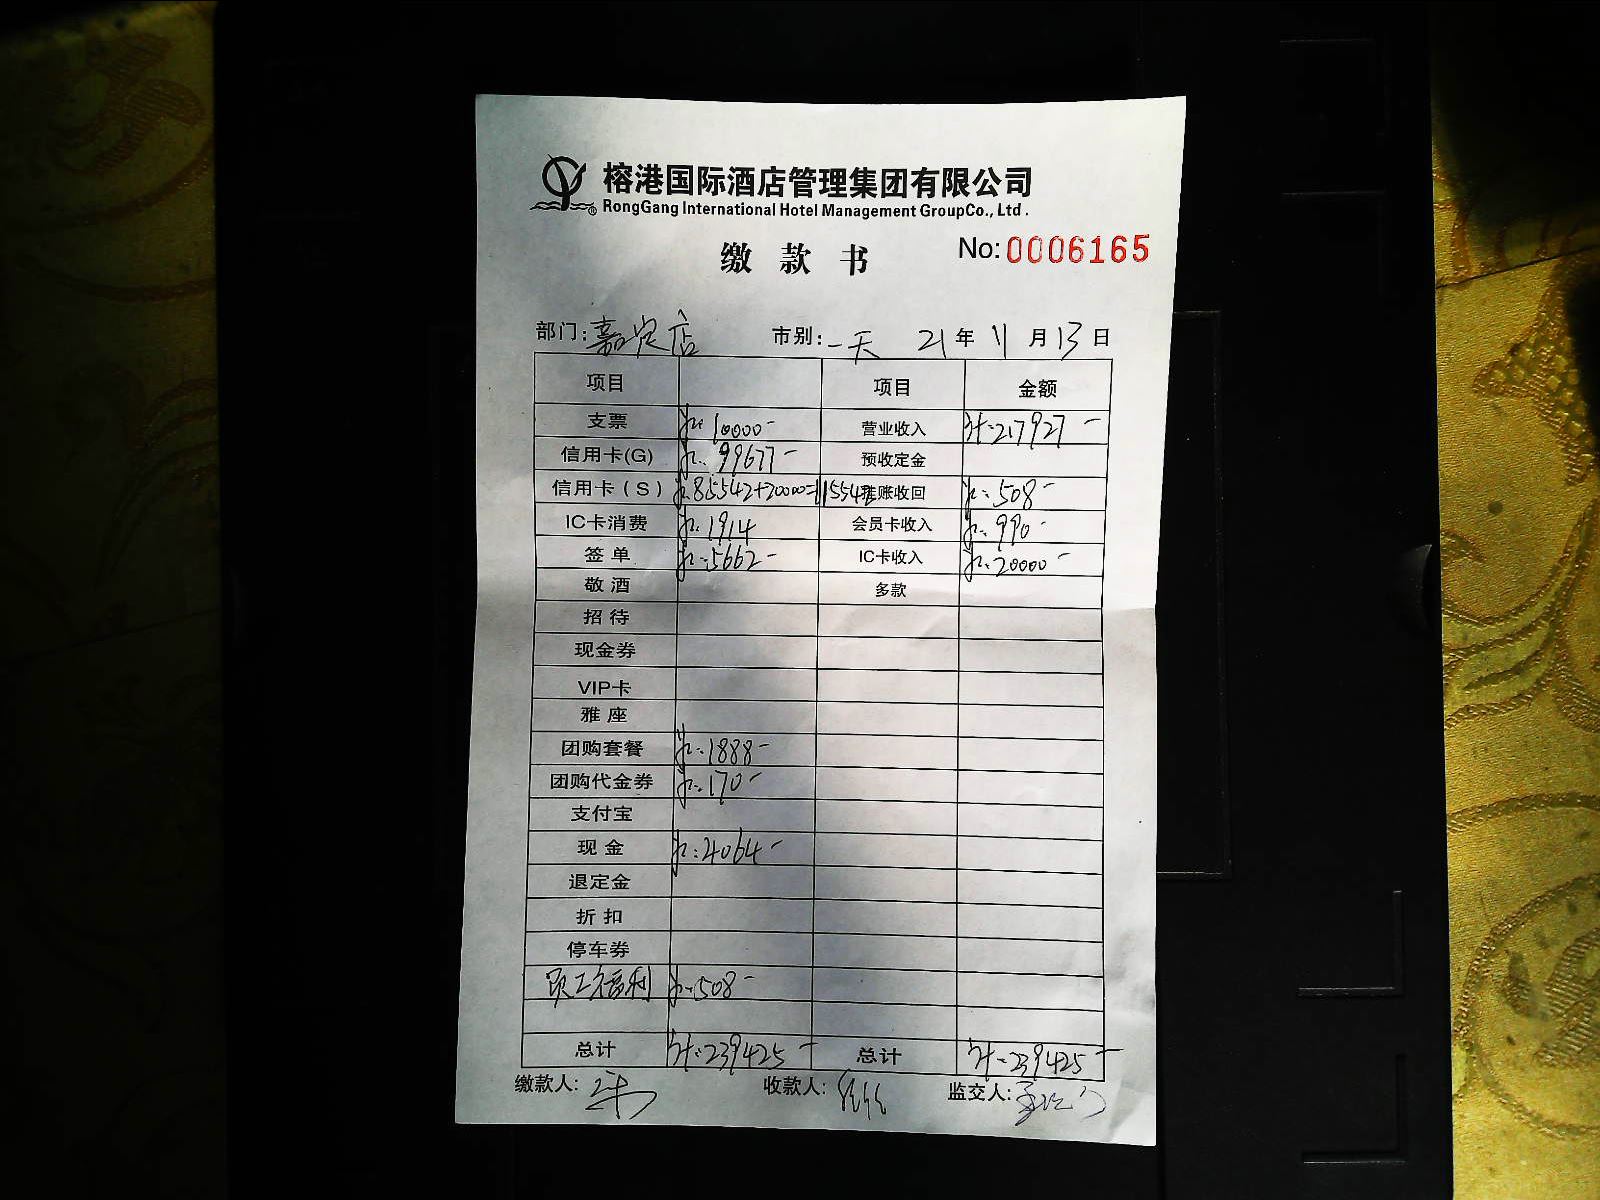 榕港国际酒店管理集团有限公司
RongGang International Hotel Management GroupCo., Ltd .
缴 款 书 No: 0006165
部门: 嘉定店 市别: 一天 21 年 11 月 13 日
项目 项目 金额
支票 计: 10000- 营业收入 计: 217927-
信用卡(G) 计: 99677- 预收定金
信用卡(S) 计: 95542+20000=115542 挂账收回 计: 508-
IC卡消费 计: 1914 会员卡收入 计: 990-
签 单 计: 5662- IC卡收入 计: 20000-
敬 酒 多款
招 待
现金券
VIP卡
雅 座
团购套餐 计: 1888-
团购代金券 计: 170-
支付宝
现 金 计: 4064-
退定金
折 扣
停车券
员工福利 计: 508-
总计 计: 239425- 总计 计: 239425-
缴款人: 收款人: 监交人: